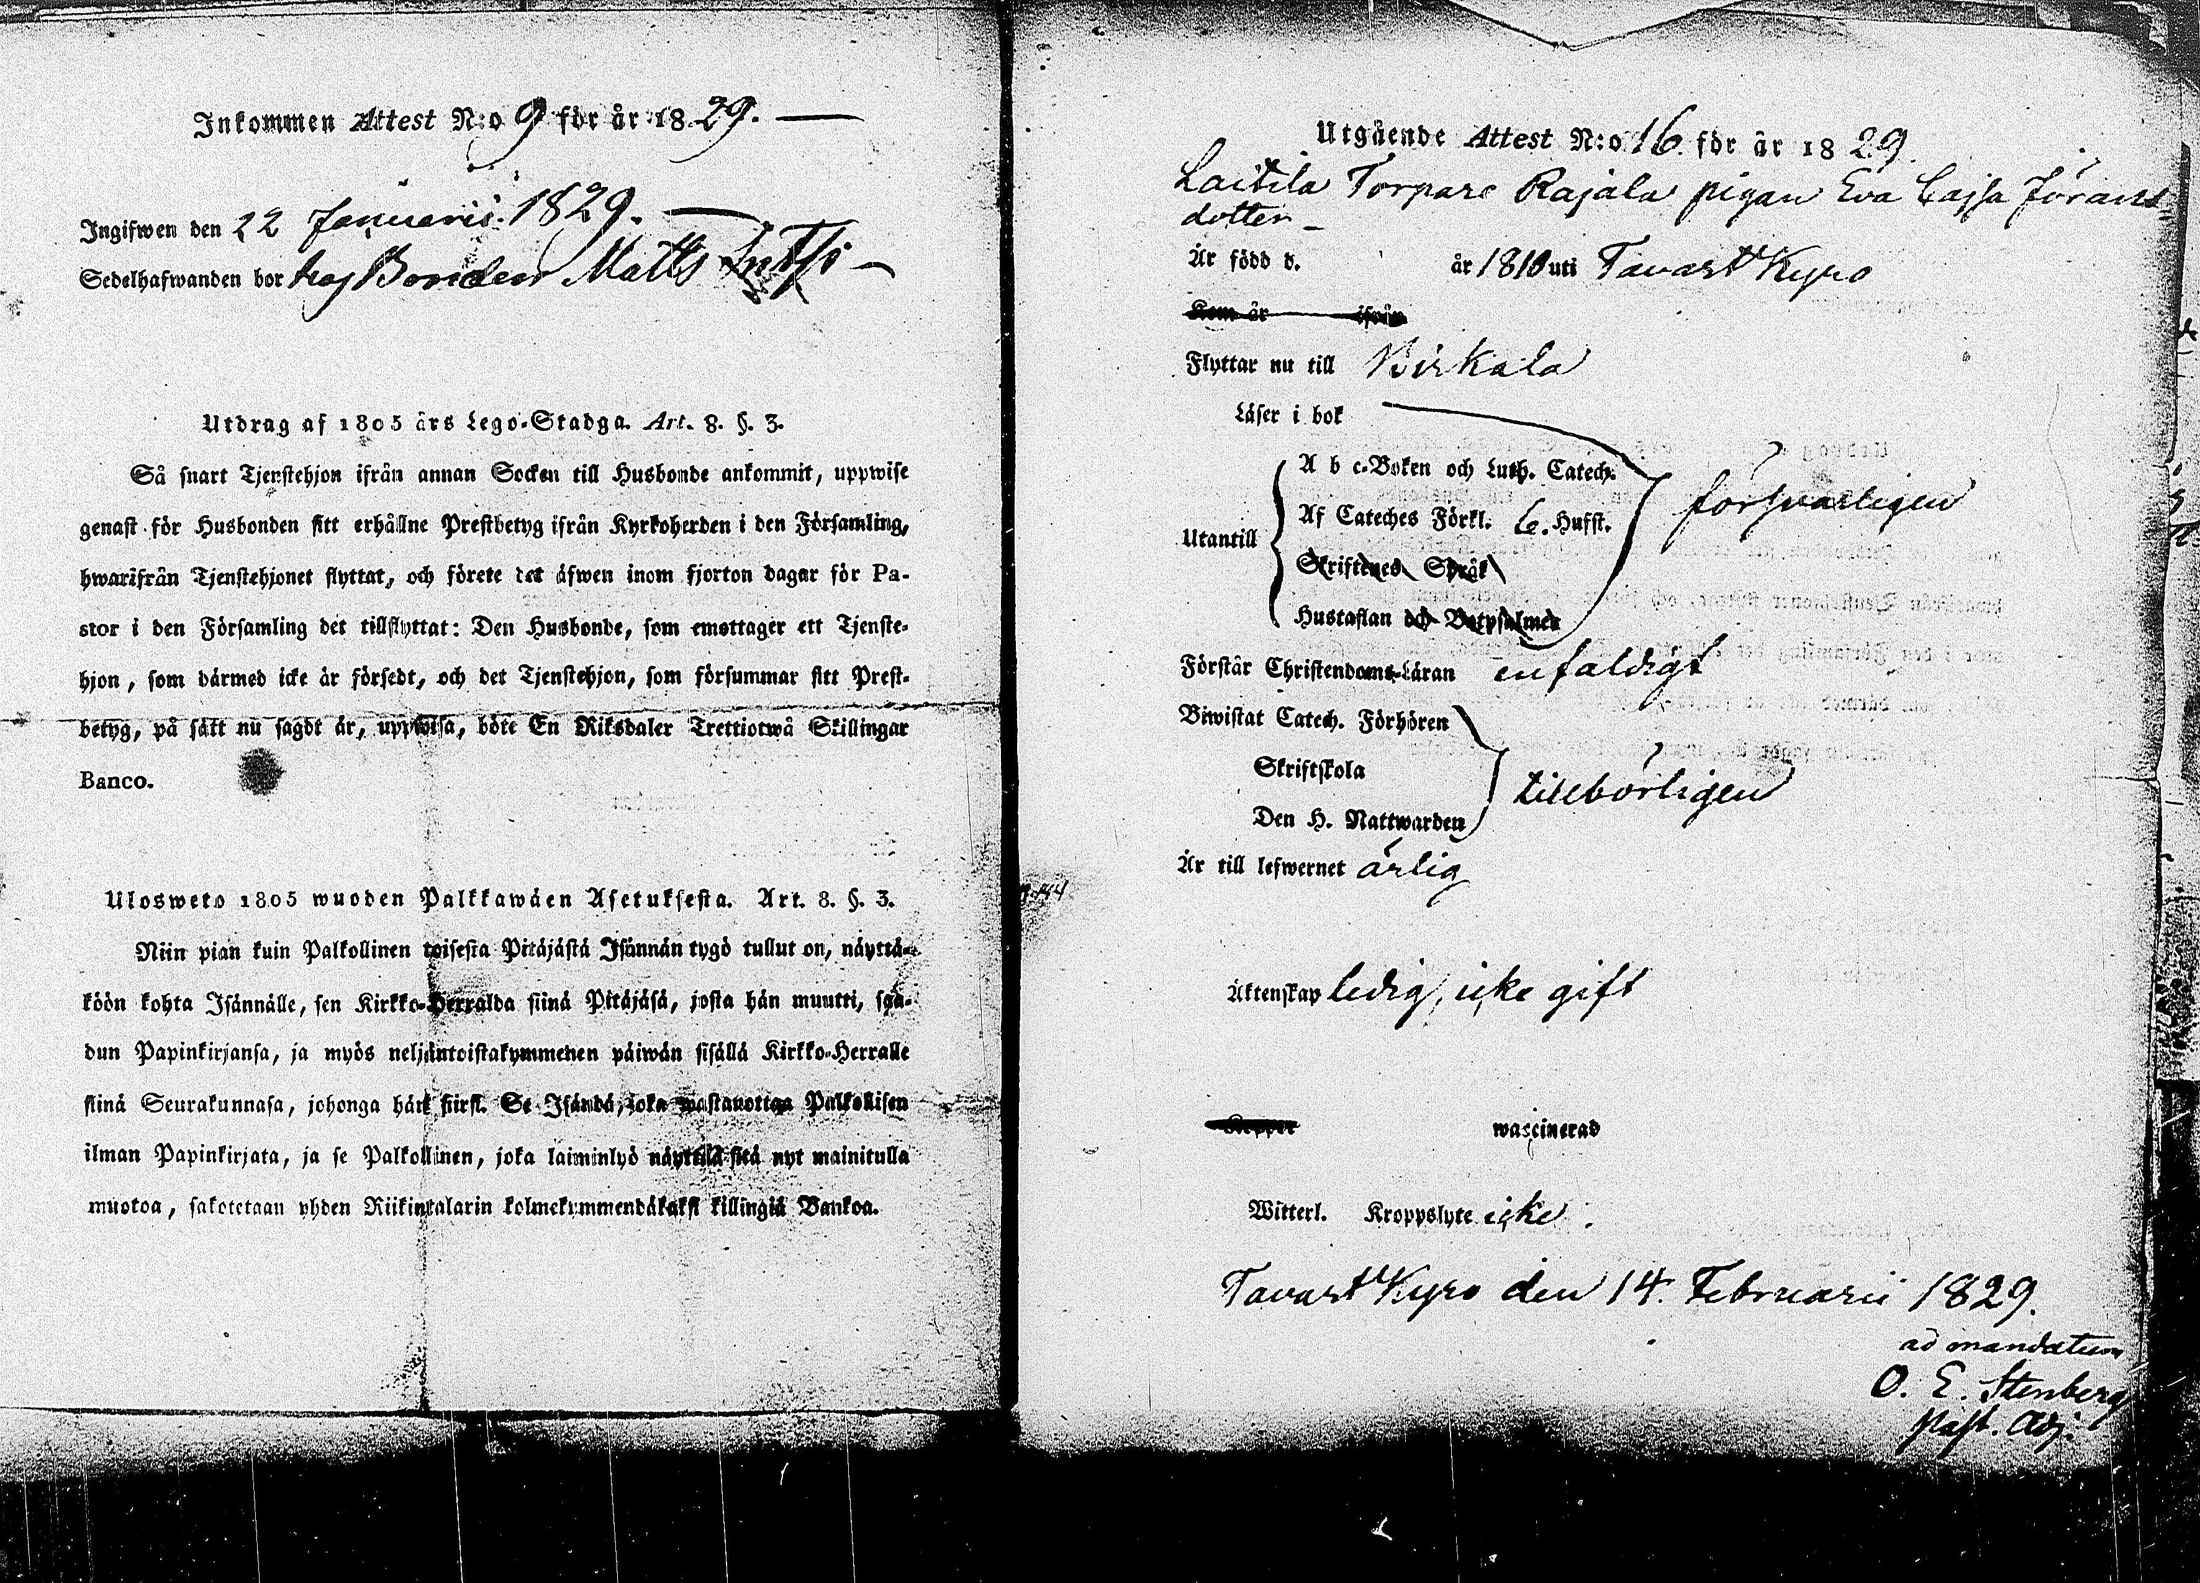 Inkommen Attest N:o 9 för år 1829.
Ingifwen den 22 Januarii 1829.
Sedelhafwanden bor hos Bonden Matts
Utdrag af 1805 års Lego-Stadga. Art. 8. §. 3.
Så snart Tjenstehjon ifrån annan Socken till Husbonde ankommit, uppwise
genast för Husbonden sitt erhållne Prestbetyg ifrån Kyrkoherden i den Församling,
hwarifrån Tjenstehjonet flyttat, och förete det äfwen inom fjorton dagar för Pa-
stor i den Församling det tillflyttat: Den Husbonde, som emottager ett Tjenste-
hjon, som därmed icke är försedt, och det Tjenstehjon, som försummar sitt Prest-
betyg, på sätt nu sagdt är, uppwisa, böte En Riksdaler Trettiotwå Skillingar
Banco.
Ulosweto 1805 wuoden Palkkawäen Asetuksesta. Art. 8. §. 3.
Niin pian kuin Palkollinen toisesta Pitäjästä Isännän tygö tullut on, näyttä-
köön kohta Isännälle, sen Kirkko-Herralda siinä Pitäjäsä, josta hän muutti, saa-
dun Papinkirjansa, ja myös neljäntoistakymmenen päiwän sisällä Kirkko-Herralle
siinä Seurakunnasa, johonga hän siirsi. Se Isändä, joka wastanottaa Palkollisen
ilman Papinkirjata, ja se Palkollinen, joka laiminlyö näyttää sitä nyt mainitulla
muotoa, sakotetaan yhden Riikintalarin kolmekymmendäkaksi killingiä Bankoa.
Utgående Attest N:o 16 för år 1829.
Laitila Torpare Rajala pigan Eva Cajsa Jörans-
dotter
Är född d. år 1810 uti Tavast Kyro
Kom år ifrån
Flyttar nu till Birkala
Läser i bok
A b c-Boken och Luth. Catech.
försvarligen
Af Cateches Förkl. 6. Hufst.
Utantill
Skriftenes Språk
Hustaflan och Botpsalmer
Förstår Christendoms-Läran enfaldigt
Biwistat Catech. Förhören
Skriftskola
tillbörligen
Den H. Nattwarden
Är till lefwernet ärlig
Äktenskap ledig, icke gift
Koppor waccinerad
Witterl. Kroppslyte icke.
Tavast Kyro den 14. Februarii 1829.
ad mandatum
O. E. Stenberg
Past. Adj.